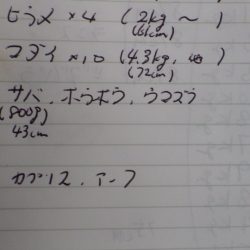 ヒラメ×4 (2kg～)
(61cm)
マダイ×10 (4.3kg, )
(72cm)
サバ、ホウボウ、ウマズラ
(800g)
43cm
カブ12、